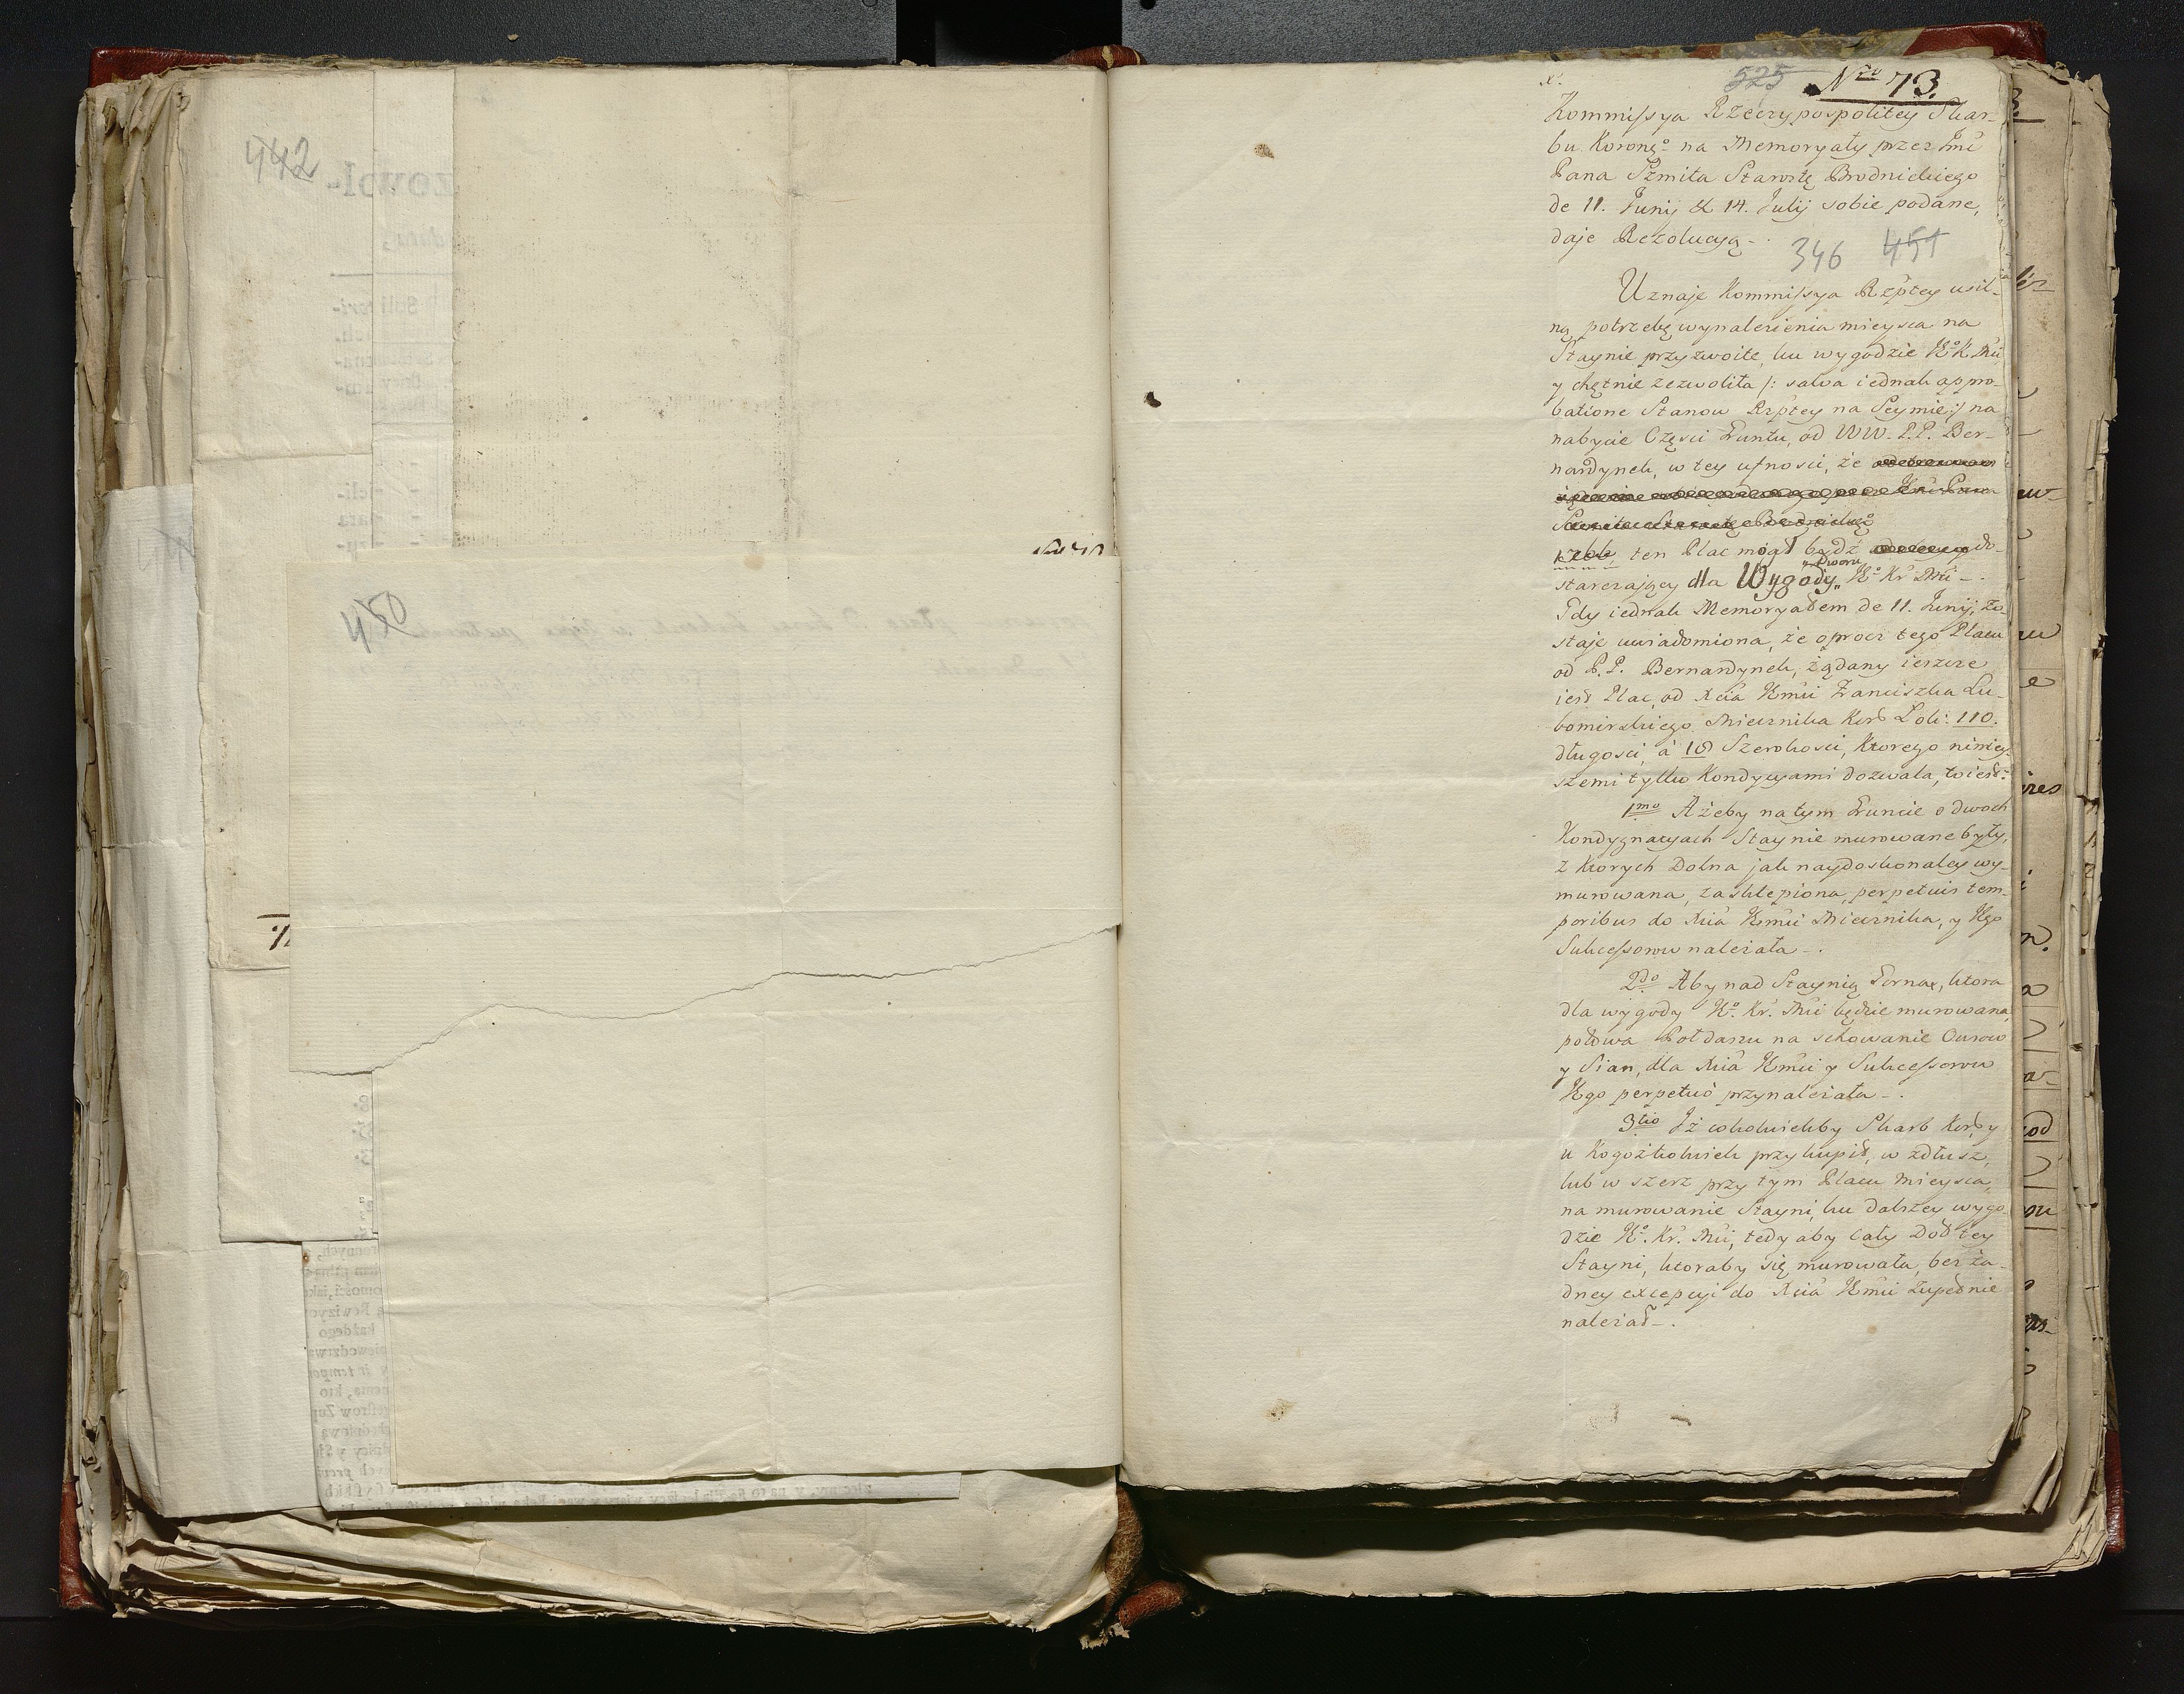 442
450
525 Nro 73.
Kommissya Rzeczypospolitey Skar-
bu Korongo na Memoryały przez Jmć
Pana Szmita Starostę Brodnickiego
de 11. Junij & 14. Julij sobie podane,
daje Rezolucyą -.
346 451
Uznaje Kommissya Rzptey usil-
ną potrzebę wynalezienia mieysca na
Staynie przyzwoite, ku wygodzie
y chętnie zezwoliła /: salva iednak appro-
batione Stanow Rzptey na Seymie :/ na
nabycie Części Gruntu, od WW. P.P. Ber-
nardynek, w tey ufności, że
ten Plac mógł bydź do-
starczaiący dla Wygody y Dworu Jo Kr Mći -.
Gdy iednak Memoryałem de 11. Junij, zo-
staje uwiadomiona, że oprocz tego Placu
od P.P. Bernardynek, żądany ieszcze
iest Plac, od Xcia Jmći Franciszka Lu-
bomirskiego Miecznika Kor Łok: 110.
długosci, á 18 Szerokosci, Ktorego ninieỵ-
szemi tylko Kondycyami dozwala, to iest:
1mo Ażeby na tym Gruncie o dwoch
Kondygnacyach Staynie murowane były,
z Ktorych Dolna jak naydoskonaley wy-
murowana, zasklepiona, perpetuis tem-
poribus do Xcia Jmći Miecznika, y Jego
Sukcessorow należała -.
2do Aby nad Staynią Gorną, ktora
dla wygody Jo. Kr. Mći będzie murowana,
połowa Poddaszu na schowanie Owsow
y Sian, dla Xcia Jmći y Sukcessorow
Jego perpetuò przynależała -.
3tio Jż cokolwiekby Skarb Kor y
u Kogożkolwiek przykupił, w zdłusz,
lub w szerz przy tym Placu mieysca,
na murowanie Stayni, ku dalszey wygo-
dzie Jo. Kr. Mći, tedy aby cały Doł tey
Stayni, ktoraby się murowała, bez ża-
dney excepcyi do Xcia Jmći zupełnie
należał -.